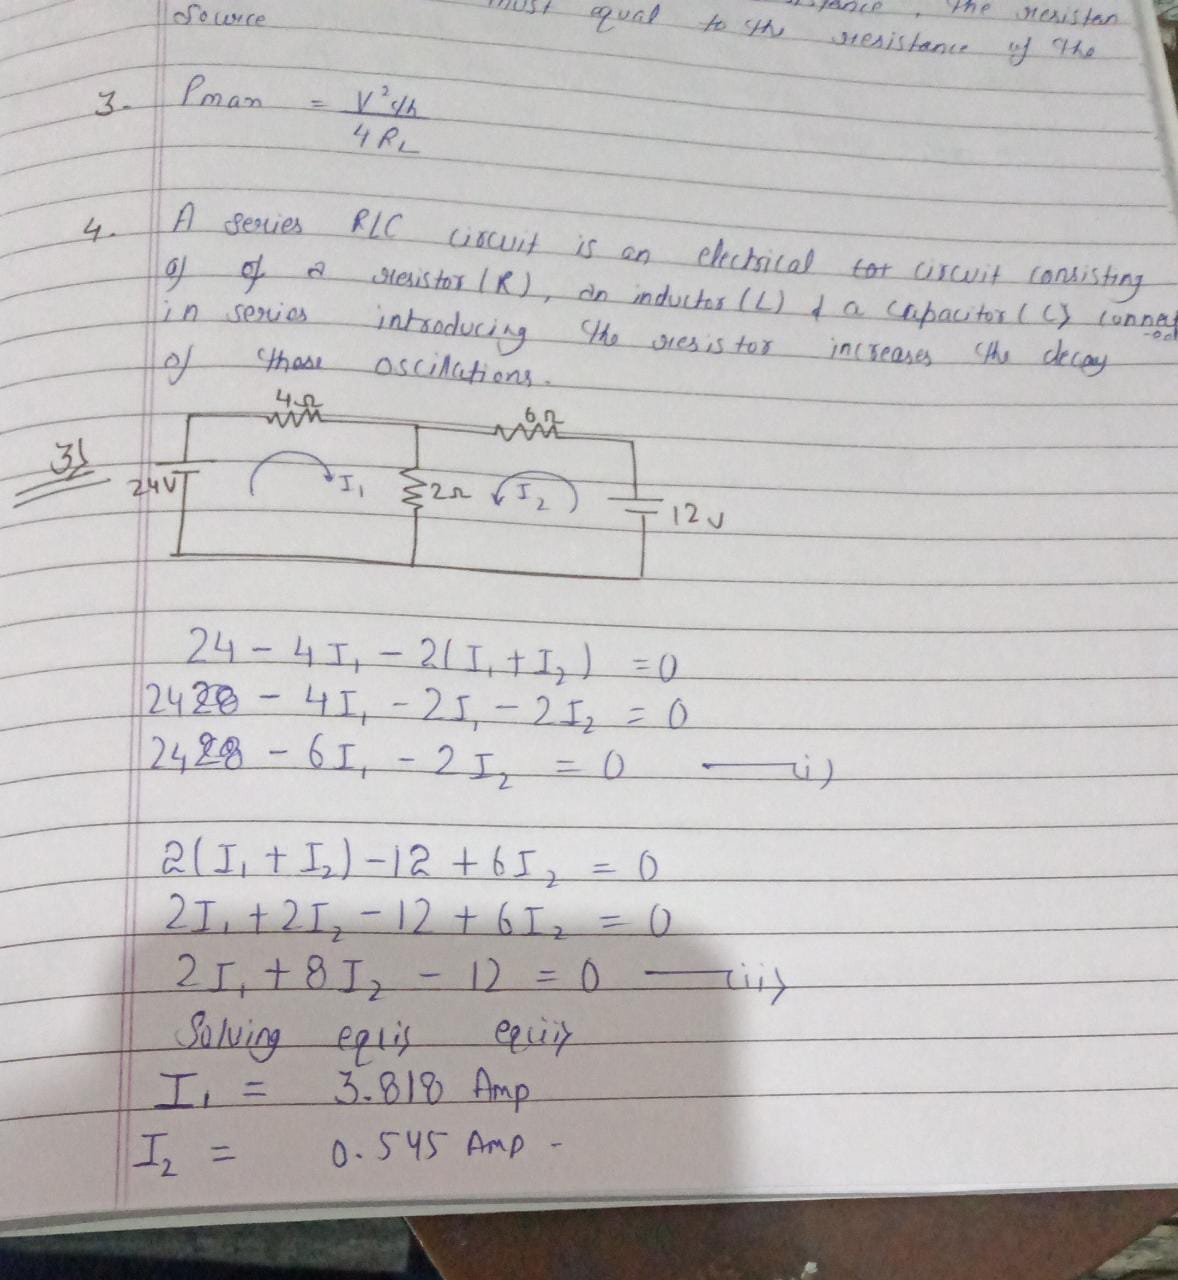 must equal to the resistance of the
the resistan
Source
3. Pman = V²th
4 RL
4. A series RLC circuit is an electrical circuit consisting
of of a resistor (R), an inductor (L) & a capacitor (C) connect
in series introducing the resistor increases the decay
of those oscillations.
4Ω
6Ω
3)
24V
I₁
2Ω
I₂
12v
24 - 4I₁ - 2(I₁ + I₂) = 0
24 - 4I₁ - 2I₁ - 2I₂ = 0
24 - 6I₁ - 2I₂ = 0 — i)
2(I₁ + I₂) - 12 + 6I₂ = 0
2I₁ + 2I₂ - 12 + 6I₂ = 0
2I₁ + 8I₂ - 12 = 0 — ii)
Solving eq(i) eq(ii)
I₁ = 3.818 Amp
I₂ = 0.545 Amp -